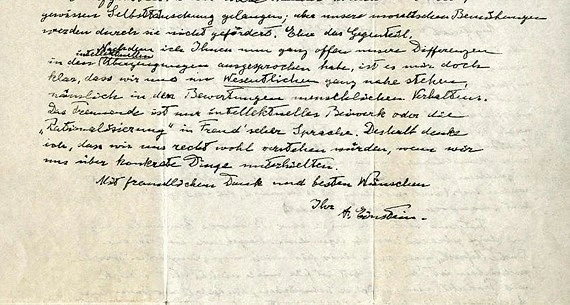 gewissen Selbsttäuschung gelangen; aber unsere moralischen Bemühungen
werden durch sie nicht gefördert. Eher das Gegenteil.
Nachdem ich Ihnen nun ganz offen unsere Differenzen
in den intellektuellen Überzeugungen ausgesprochen habe, ist es mir doch
klar, dass wir uns im Wesentlichen ganz nahe stehen,
nämlich in den Bewertungen menschlichen Verhaltens.
Das Trennende ist nur intellektuelles Beiwerk oder die
„Rationalisierung" in Freud'scher Sprache. Deshalb denke
ich, dass wir uns recht wohl verstehen würden, wenn wir
uns über konkrete Dinge unterhielten.
Mit freundlichem Dank und besten Wünschen
Ihr A. Einstein.